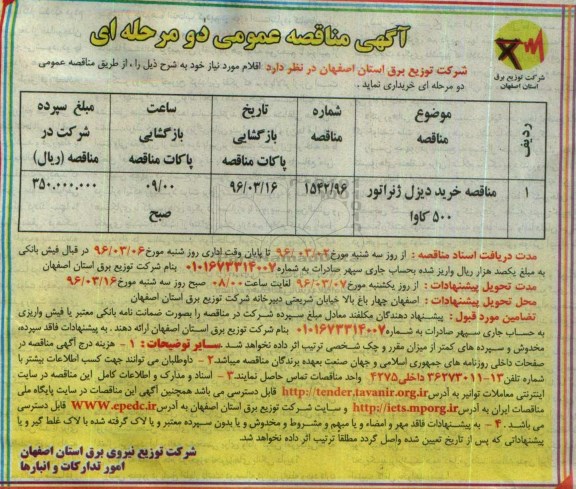 آگهی مناقصه عمومی دو مرحله ای
شرکت توزیع برق
استان اصفهان
شرکت توزیع برق استان اصفهان در نظر دارد اقلام مورد نیاز خود به شرح ذیل را ، از طریق مناقصه عمومی
دو مرحله ای خریداری نماید .
ردیف
موضوع مناقصه
شماره مناقصه
تاریخ بازگشایی پاکات مناقصه
ساعت بازگشایی پاکات مناقصه
مبلغ سپرده شرکت در مناقصه (ریال)
۱
مناقصه خرید دیزل ژنراتور ۵۰۰ کاوا
۱۵۴۲/۹۶
۹۶/۰۳/۱۶
۰۹/۰۰ صبح
۳۵۰.۰۰۰.۰۰۰
مدت دریافت اسناد مناقصه : از روز سه شنبه مورخ ۹۶/۰۳/۰۲ تا پایان وقت اداری روز شنبه مورخ ۹۶/۰۳/۰۶ در قبال فیش بانکی
به مبلغ یکصد هزار ریال واریز شده بحساب جاری سپهر صادرات به شماره ۰۱۰۱۶۷۳۳۱۴۰۰۷ بنام شرکت توزیع برق استان اصفهان
مدت تحویل پیشنهادات : از روز یکشنبه مورخ ۹۶/۰۳/۰۷ لغایت ساعت ۰۸/۰۰ صبح روز سه شنبه مورخ ۹۶/۰۳/۱۶
محل تحویل پیشنهادات : اصفهان چهار باغ بالا خیابان شریعتی دبیرخانه شرکت توزیع برق استان اصفهان
تضامین مورد قبول : پیشنهاد دهندگان مکلفند معادل مبلغ سپرده شرکت در مناقصه را بصورت ضمانت نامه بانکی معتبر یا فیش واریزی
به حساب جاری سپهر صادرات به شماره ۰۱۰۱۶۷۳۳۱۴۰۰۷ بنام شرکت توزیع برق استان اصفهان ارائه دهند . به پیشنهادات فاقد سپرده،
مخدوش و سپرده های کمتر از میزان مقرر و چک شخصی ترتیب اثر داده نخواهد شد. سایر توضیحات : ۱ - هزینه درج آگهی مناقصه در
صفحات داخلی روزنامه های جمهوری اسلامی و جهان صنعت بعهده برندگان مناقصه میباشد. ۲ - داوطلبان می توانند جهت کسب اطلاعات بیشتر با
شماره تلفن ۱۳-۳۶۲۷۳۰۱۱ داخلی ۴۲۷۵ واحد مناقصات تماس حاصل نمایند. ۳ - اسناد و مدارک و اطلاعات کامل این مناقصه در سایت
اینترنتی معاملات توانیر به آدرس http://tender.tavanir.org.ir قابل دسترسی می باشد همچنین آگهی این مناقصات در سایت پایگاه ملی
مناقصات ایران به آدرس http://iets.mporg.ir و سایت شرکت توزیع برق استان اصفهان به آدرس WWW.epedc.ir قابل دسترسی
می باشد . ۴ - به پیشنهادات فاقد مهر و امضاء و یا مبهم و مشروط و مخدوش و یا بدون سپرده معتبر و یا لاک گرفته شده با لاک غلط گیر و یا
پیشنهاداتی که پس از تاریخ تعیین شده واصل گردد مطلقا ترتیب اثر داده نخواهد شد.
شرکت توزیع نیروی برق استان اصفهان
امور تدارکات و انبارها